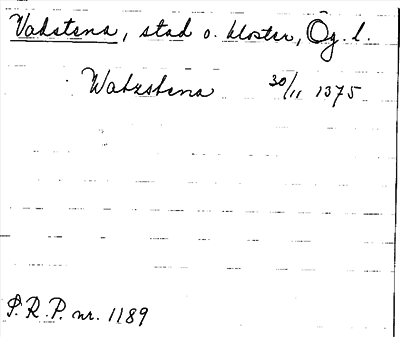 Vadstena, stad o. kloster, Ög. l.
Watzstena 30/11 1375
S.R.P. nr. 1189